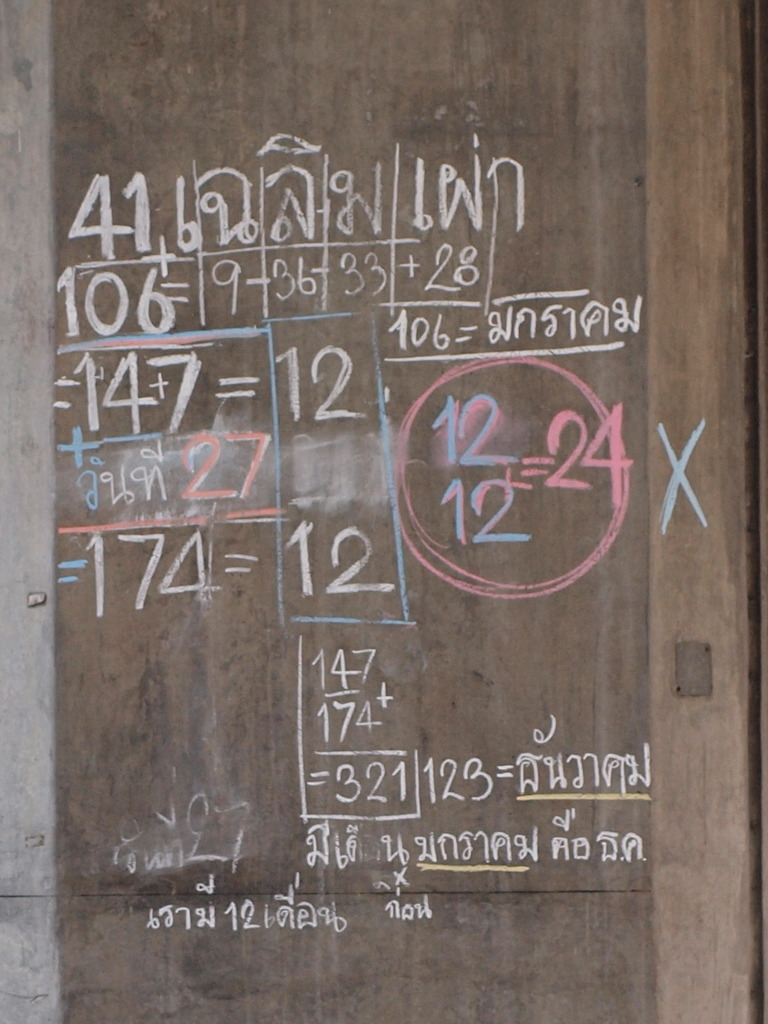 41 เฉลิมเผ่า
106 = 9 - 36 - 33 + 28
106 = มกราคม
= 147 = 12
+ วันที่ 27
= 174 = 12
12
12 + = 24 X
147
174 +
= 321 123 = ธันวาคม
มกราคม คือ ธ.ค.
เรามี 12 เดือน ก่อน